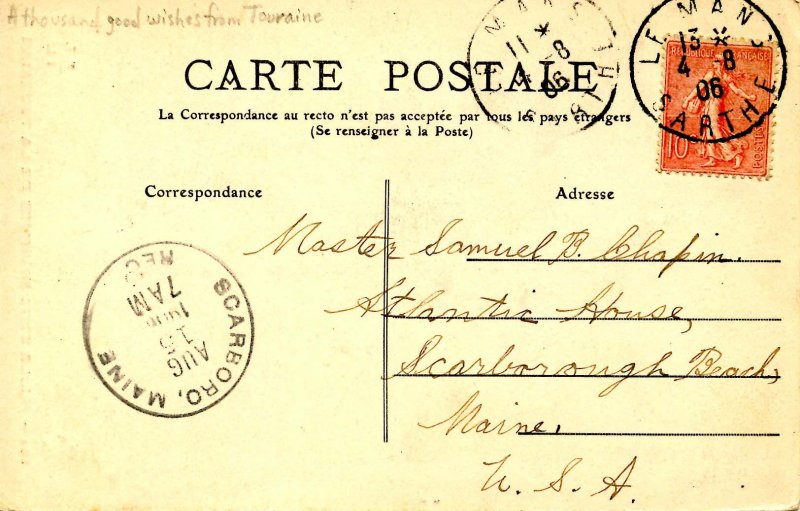 A thousand good wishes from Touraine
CARTE POSTALE
La Correspondance au recto n'est pas acceptée par tous les pays étrangers
(Se renseigner à la Poste)
LE MANS
11 *
4-8
06
SARTHE
LE MANS
13 *
4-8
06
SARTHE
RÉPUBLIQUE FRANÇAISE
10
POSTES
Correspondance
Adresse
Master Samuel B. Chapin.
Atlantic House,
Scarborough Beach,
Maine.
U. S. A.
SCARBORO, MAINE
AUG
15
1906
7 AM
REC'D